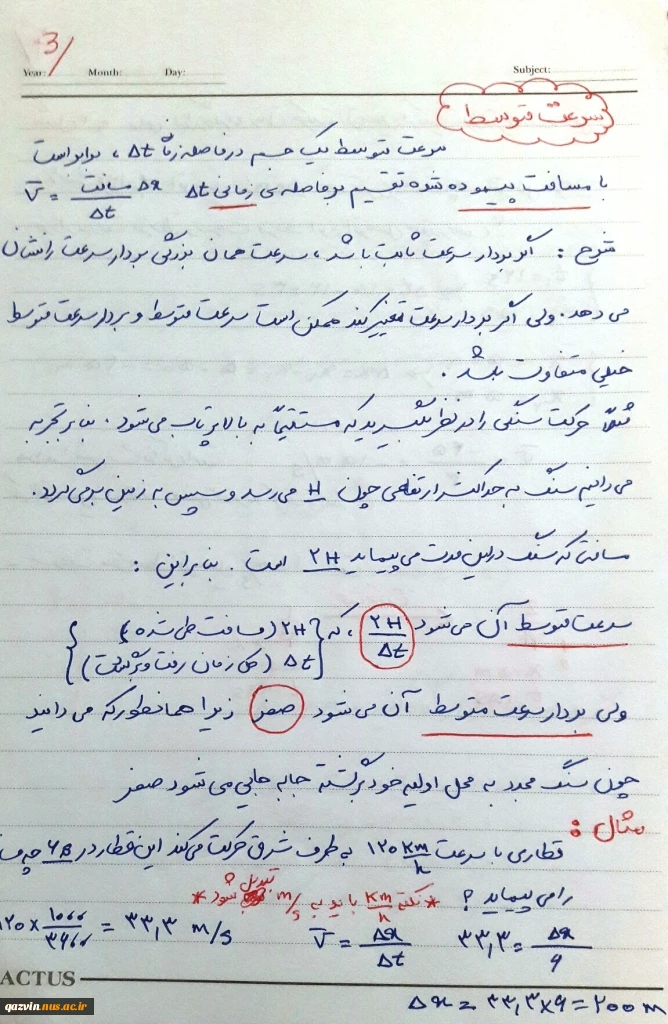 3/
Year: Month: Day: Subject:
سرعت متوسط
سرعت متوسط یک جسم در فاصله زمانی Δt ، برابر است
با مسافت پیموده شده تقسیم بر فاصله‌ی زمانی Δt V̄ = مسافت Δx / Δt
شرح : اگر بردار سرعت ثابت باشد ، سرعت همان بزرگی بردار سرعت را نشان
می دهد . ولی اگر بردار سرعت تغییر کند ممکن است سرعت متوسط و بردار سرعت متوسط
خیلی متفاوت باشد .
مثلاً حرکت سنگی را در نظر بگیرید که مستقیماً به بالا پرتاب می شود . بنا بر تجربه
می دانیم سنگ به حداکثر ارتفاعی چون H می رسد و سپس به زمین برمی گردد .
مسافتی که سنگ در این مدت می پیماید ۲H است . بنابراین :
سرعت متوسط آن می شود ۲H / Δt ، که { ۲H ( مسافت طی شده )
Δt ( کل زمان رفت و برگشت ) }
ولی بردار سرعت متوسط آن می شود صفر زیرا همانطور که می دانید
چون سنگ مجدد به محل اولیه خود برگشته جابه جایی می شود صفر
مثال :
قطاری با سرعت ۱۲۰ Km/h به طرف شرق حرکت می کند این قطار در ۶s چه
را می پیماید ؟ * نکته Km/h باید به m/s تبدیل شود *
۱۲۰ × ۱۰۰۰/۳۶۰۰ = ۳۳,۳ m/s V̄ = Δx / Δt ۳۳,۳ = Δx / ۶
Δx = ۳۳,۳×۶ = ۲۰۰ m
ACTUS
qazvin.nus.ac.ir